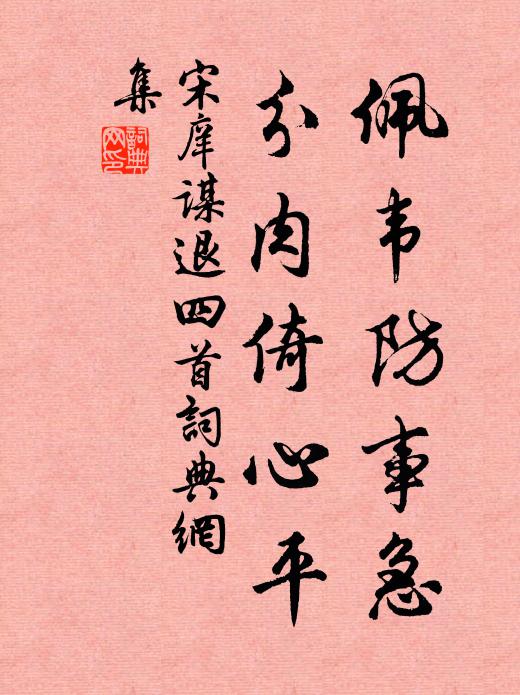 佩韦防事急
分肉倚心平
宋庠谋退四首詞典網
集
詞典
网印